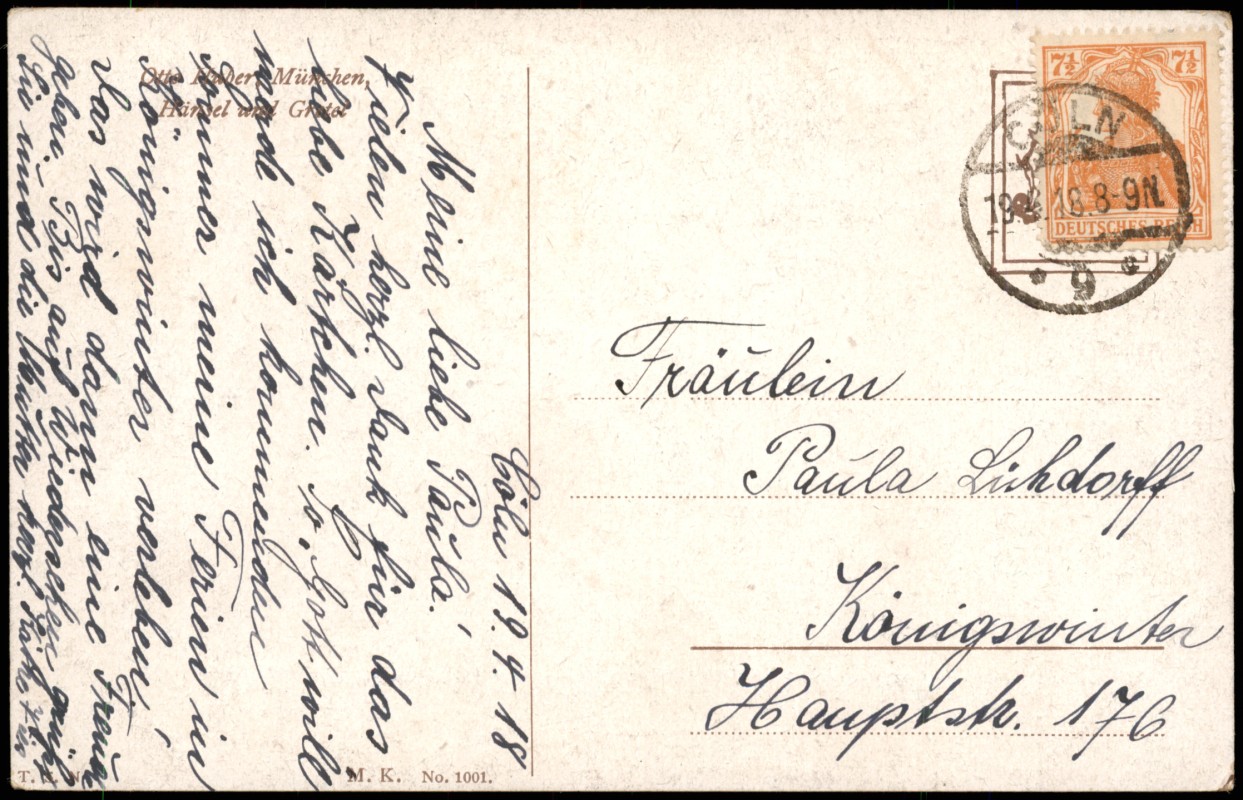 Otto Kubel, München,
Hänsel und Gretel
Cöln 19.4.18
Meine liebe Paula!
Vielen herzl. Dank für das
liebe Kärtchen. So Gott will
werde ich kommenden
Sommer meine Ferien in
Königswinter verleben!
Das wird dann eine Freude
geben. Bis auf Wiedersehen grüßt
Sie und die Mutter herzl.
7½ 7½
DEUTSCHES REICH
CÖLN
19.4.18.8-9N.
* 9 *
Fräulein
Paula Lühdorff
Königswinter
Hauptstr. 176
M. K. No. 1001.